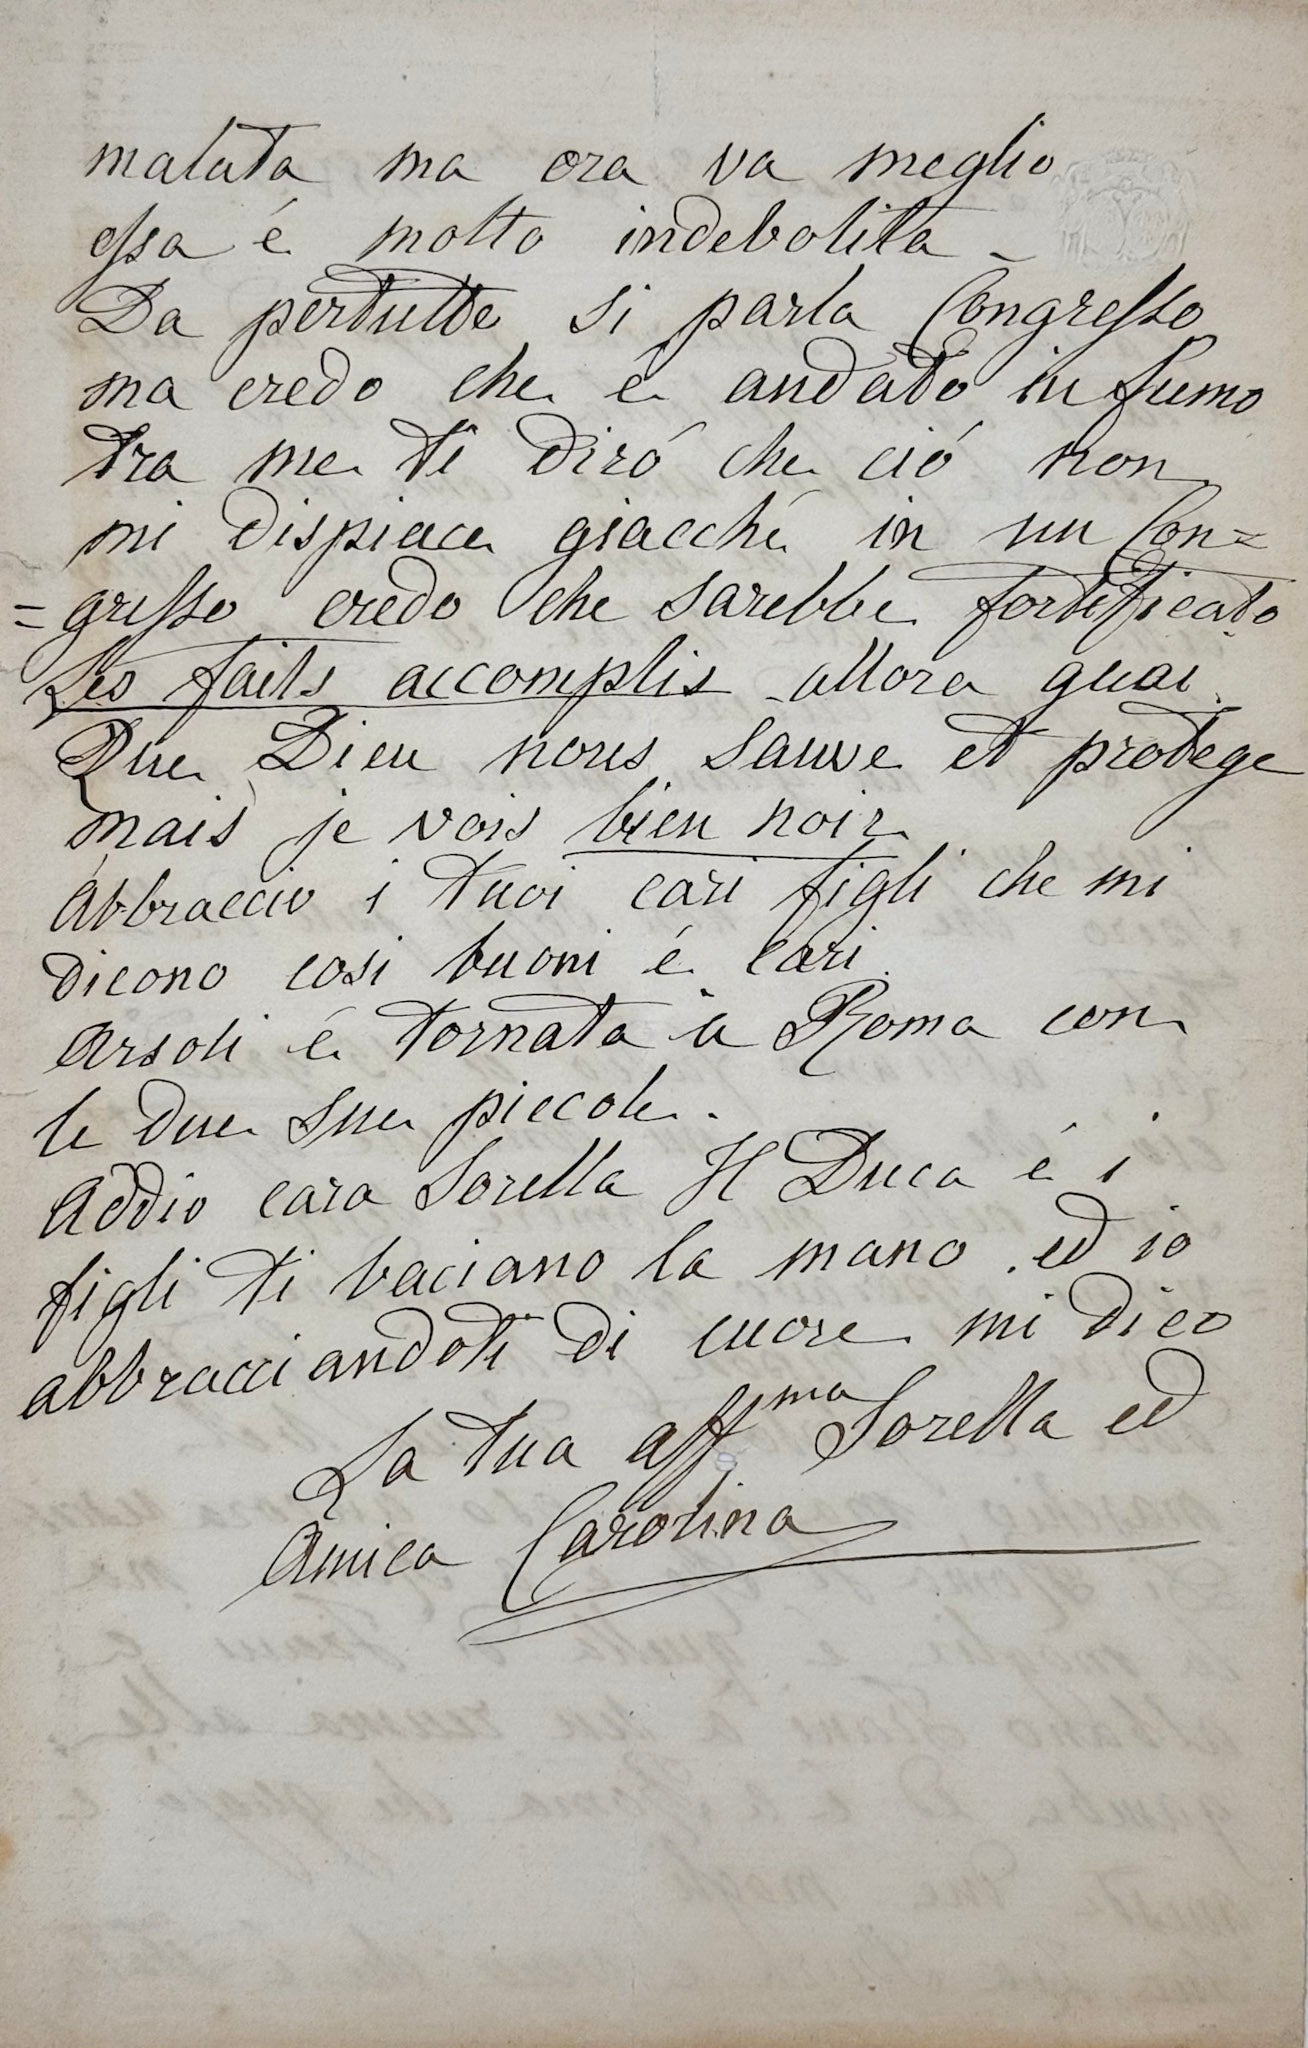 malata ma ora va meglio
essa é molto indebolita -
Da pertutto si parla Congresso
ma credo che é andato in fumo
tra me ti diró che ció non
mi dispiace giacché in un Con=
=gresso credo che sarebbe fortificato
Les faits accomplis allora guai
Que Dieu nous sauve et protege
mais je vois bien noir
Abbraccio i tuoi cari figli che mi
dicono cosi buoni é cari
Arsoli é tornata a Roma con
le due sue piccole.
Addio cara Sorella Il Duca é i
figli ti baciano la mano ed io
abbracciandoti di cuore mi dico
La tua aff.ma Sorella ed
Amica Carolina